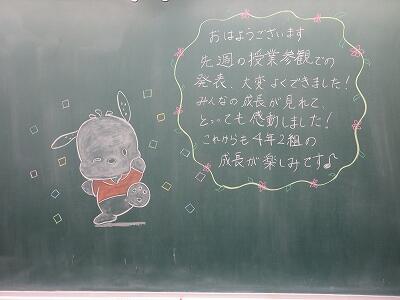 おはようございます
先週の授業参観での
発表、大変よくできました!
みんなの成長が見れて、
とっっても感動しました!
これからも4年2組の
成長が楽しみです♪